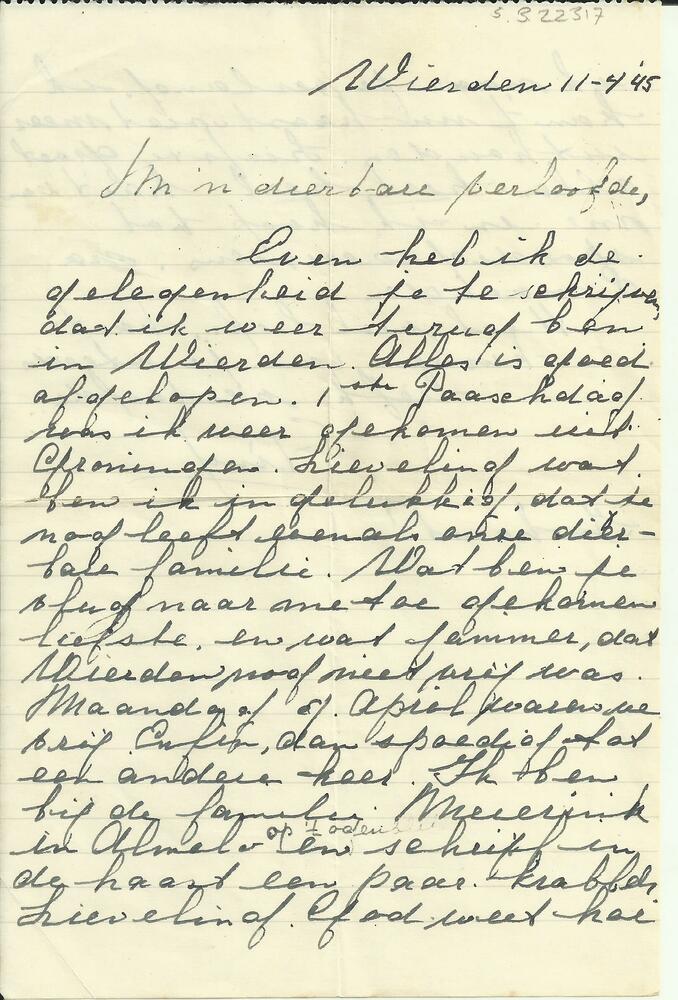 5.3.22317
Wierden 11-4'45
M'n dierbare verloofde,
Even heb ik de
gelegenheid je te schrijven,
dat ik weer terug ben
in Wierden. Alles is goed
afgelopen. 1ste Paaschdag
was ik weer gekomen uit
Groningen. Lieveling wat
ben ik in gelukkig, dat je
nog leeft evenals onze dier-
bare familie. Wat ben je
vlug naar me toe gekomen
liefste, en wat jammer, dat
Wierden nog niet vrij was.
Maandag 9 April waren we
vrij. Enfin, dan spoedig tot
een andere keer. Ik ben
bij de familie Meierink
in Almelo op 't ogenblik en schrijf in
de haast een paar krabbels
Lieveling. God weet hoe